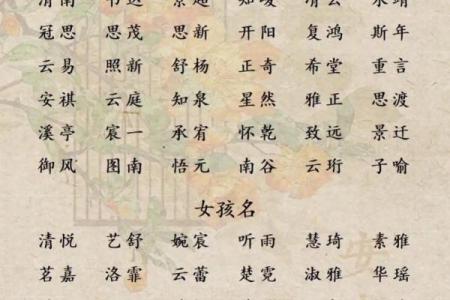 冠思 思茂 思新 开阳 复鸿 斯年
云易 照新 舒杨 正奇 希堂 重言
安祺 云庭 知泉 星然 雅正 思渡
溪亭 宸一 承宥 怀乾 致远 景迁
御风 图南 悟元 南谷 云珩 子喻
女孩名
清悦 艺舒 婉宸 听雨 慧琦 素雅
茗嘉 洛霏 云蕾 楚霓 淑雅 华瑶